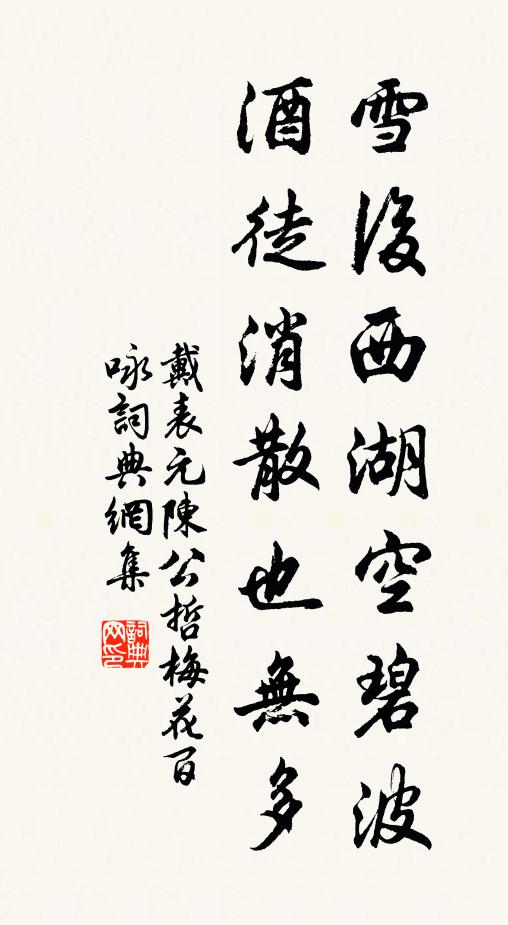 雪後西湖空碧波
酒徒消散也無多
戴表元陳公哲梅花百
咏詞典網集
詞典
网印